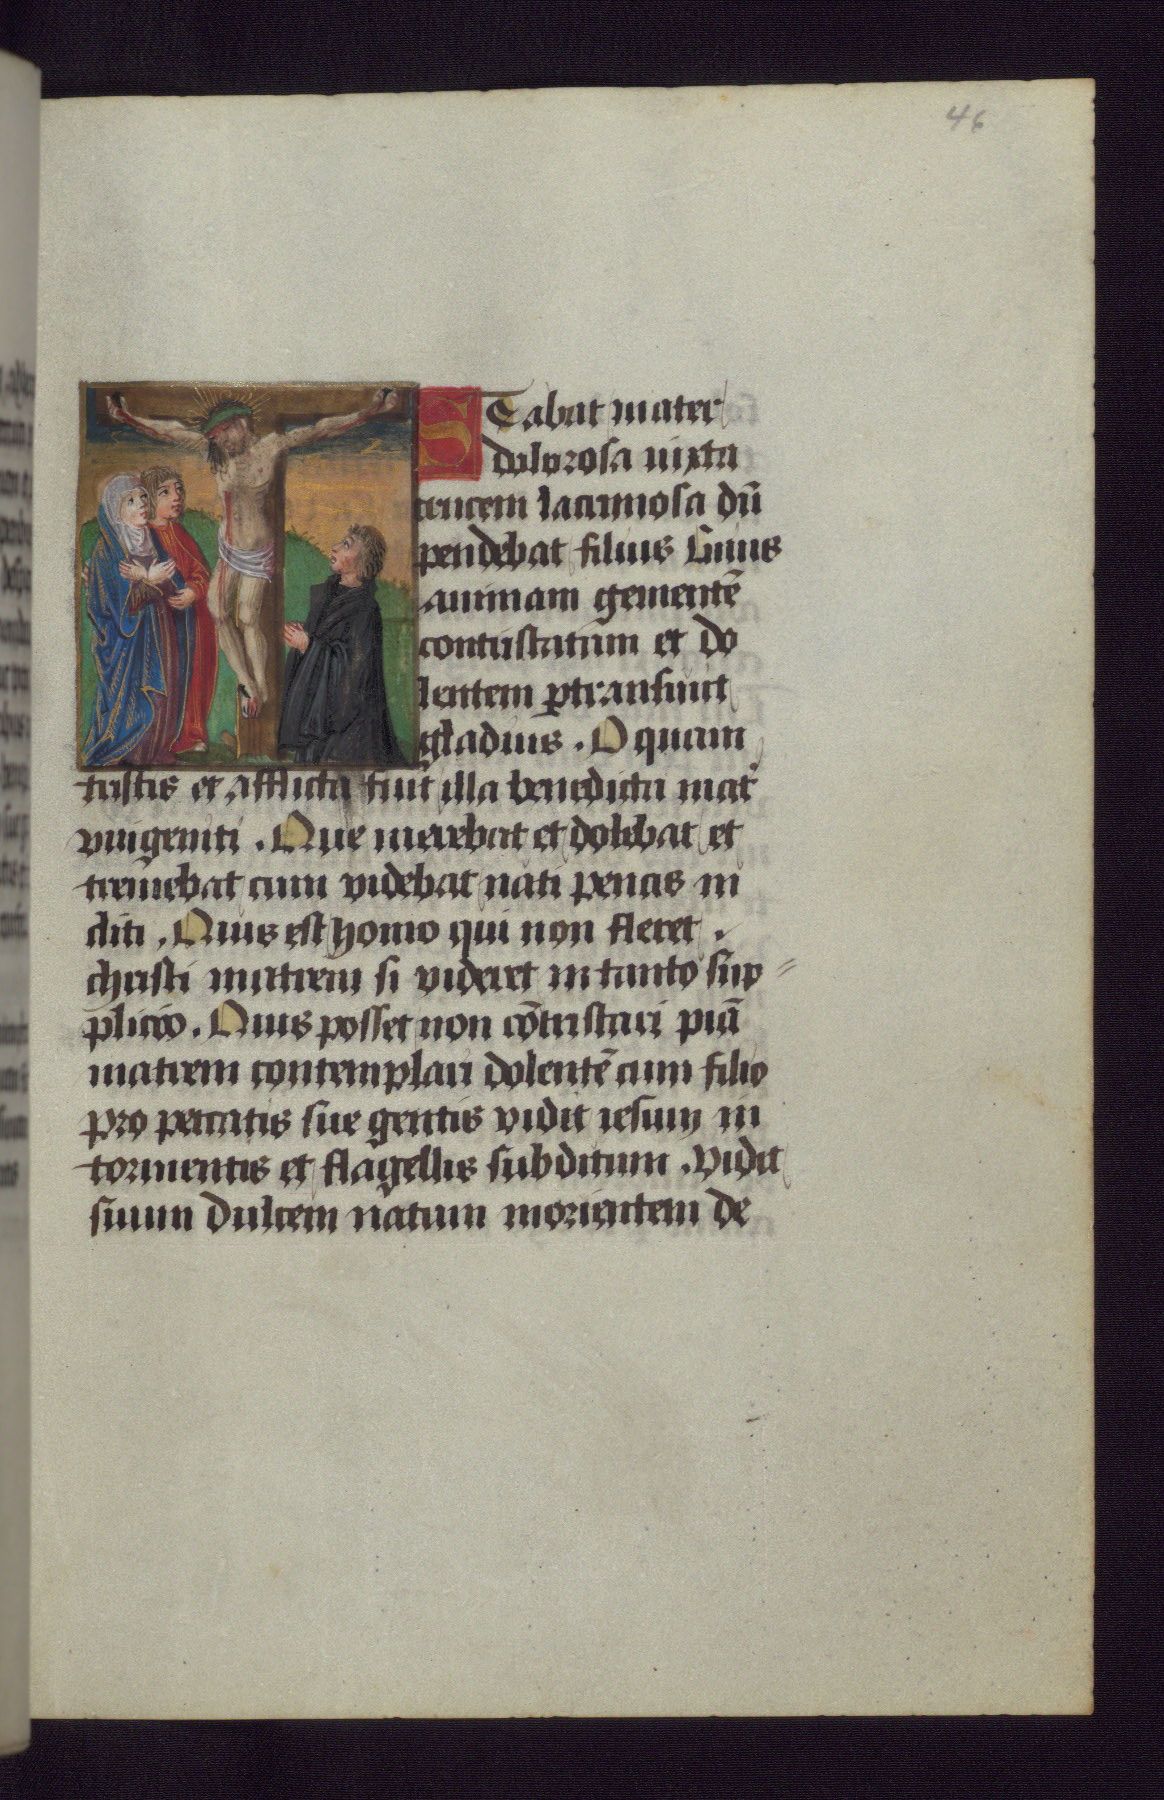 46
STabat mater
dolorosa iuxta
crucem lacrimosa dū
pendebat filius Cuius
animam gementē
contristatam et do
lentem ꝑtransiuit
gladius . O quam
tristis et afflicta fuit illa benedicta mat᷑
vnigeniti . Que merebat et dolebat et
tremebat cum videbat nati penas in
cliti . Quis est homo qui non fleret .
christi matrem si videret in tanto sup〃
plicio . Quis posset non cōtristari piā
matrem contemplari dolentē cum filio
pro peccatis sue gentis vidit iesum in
tormentis et flagellis subditum . Vidit
suum dulcem natum morientem de